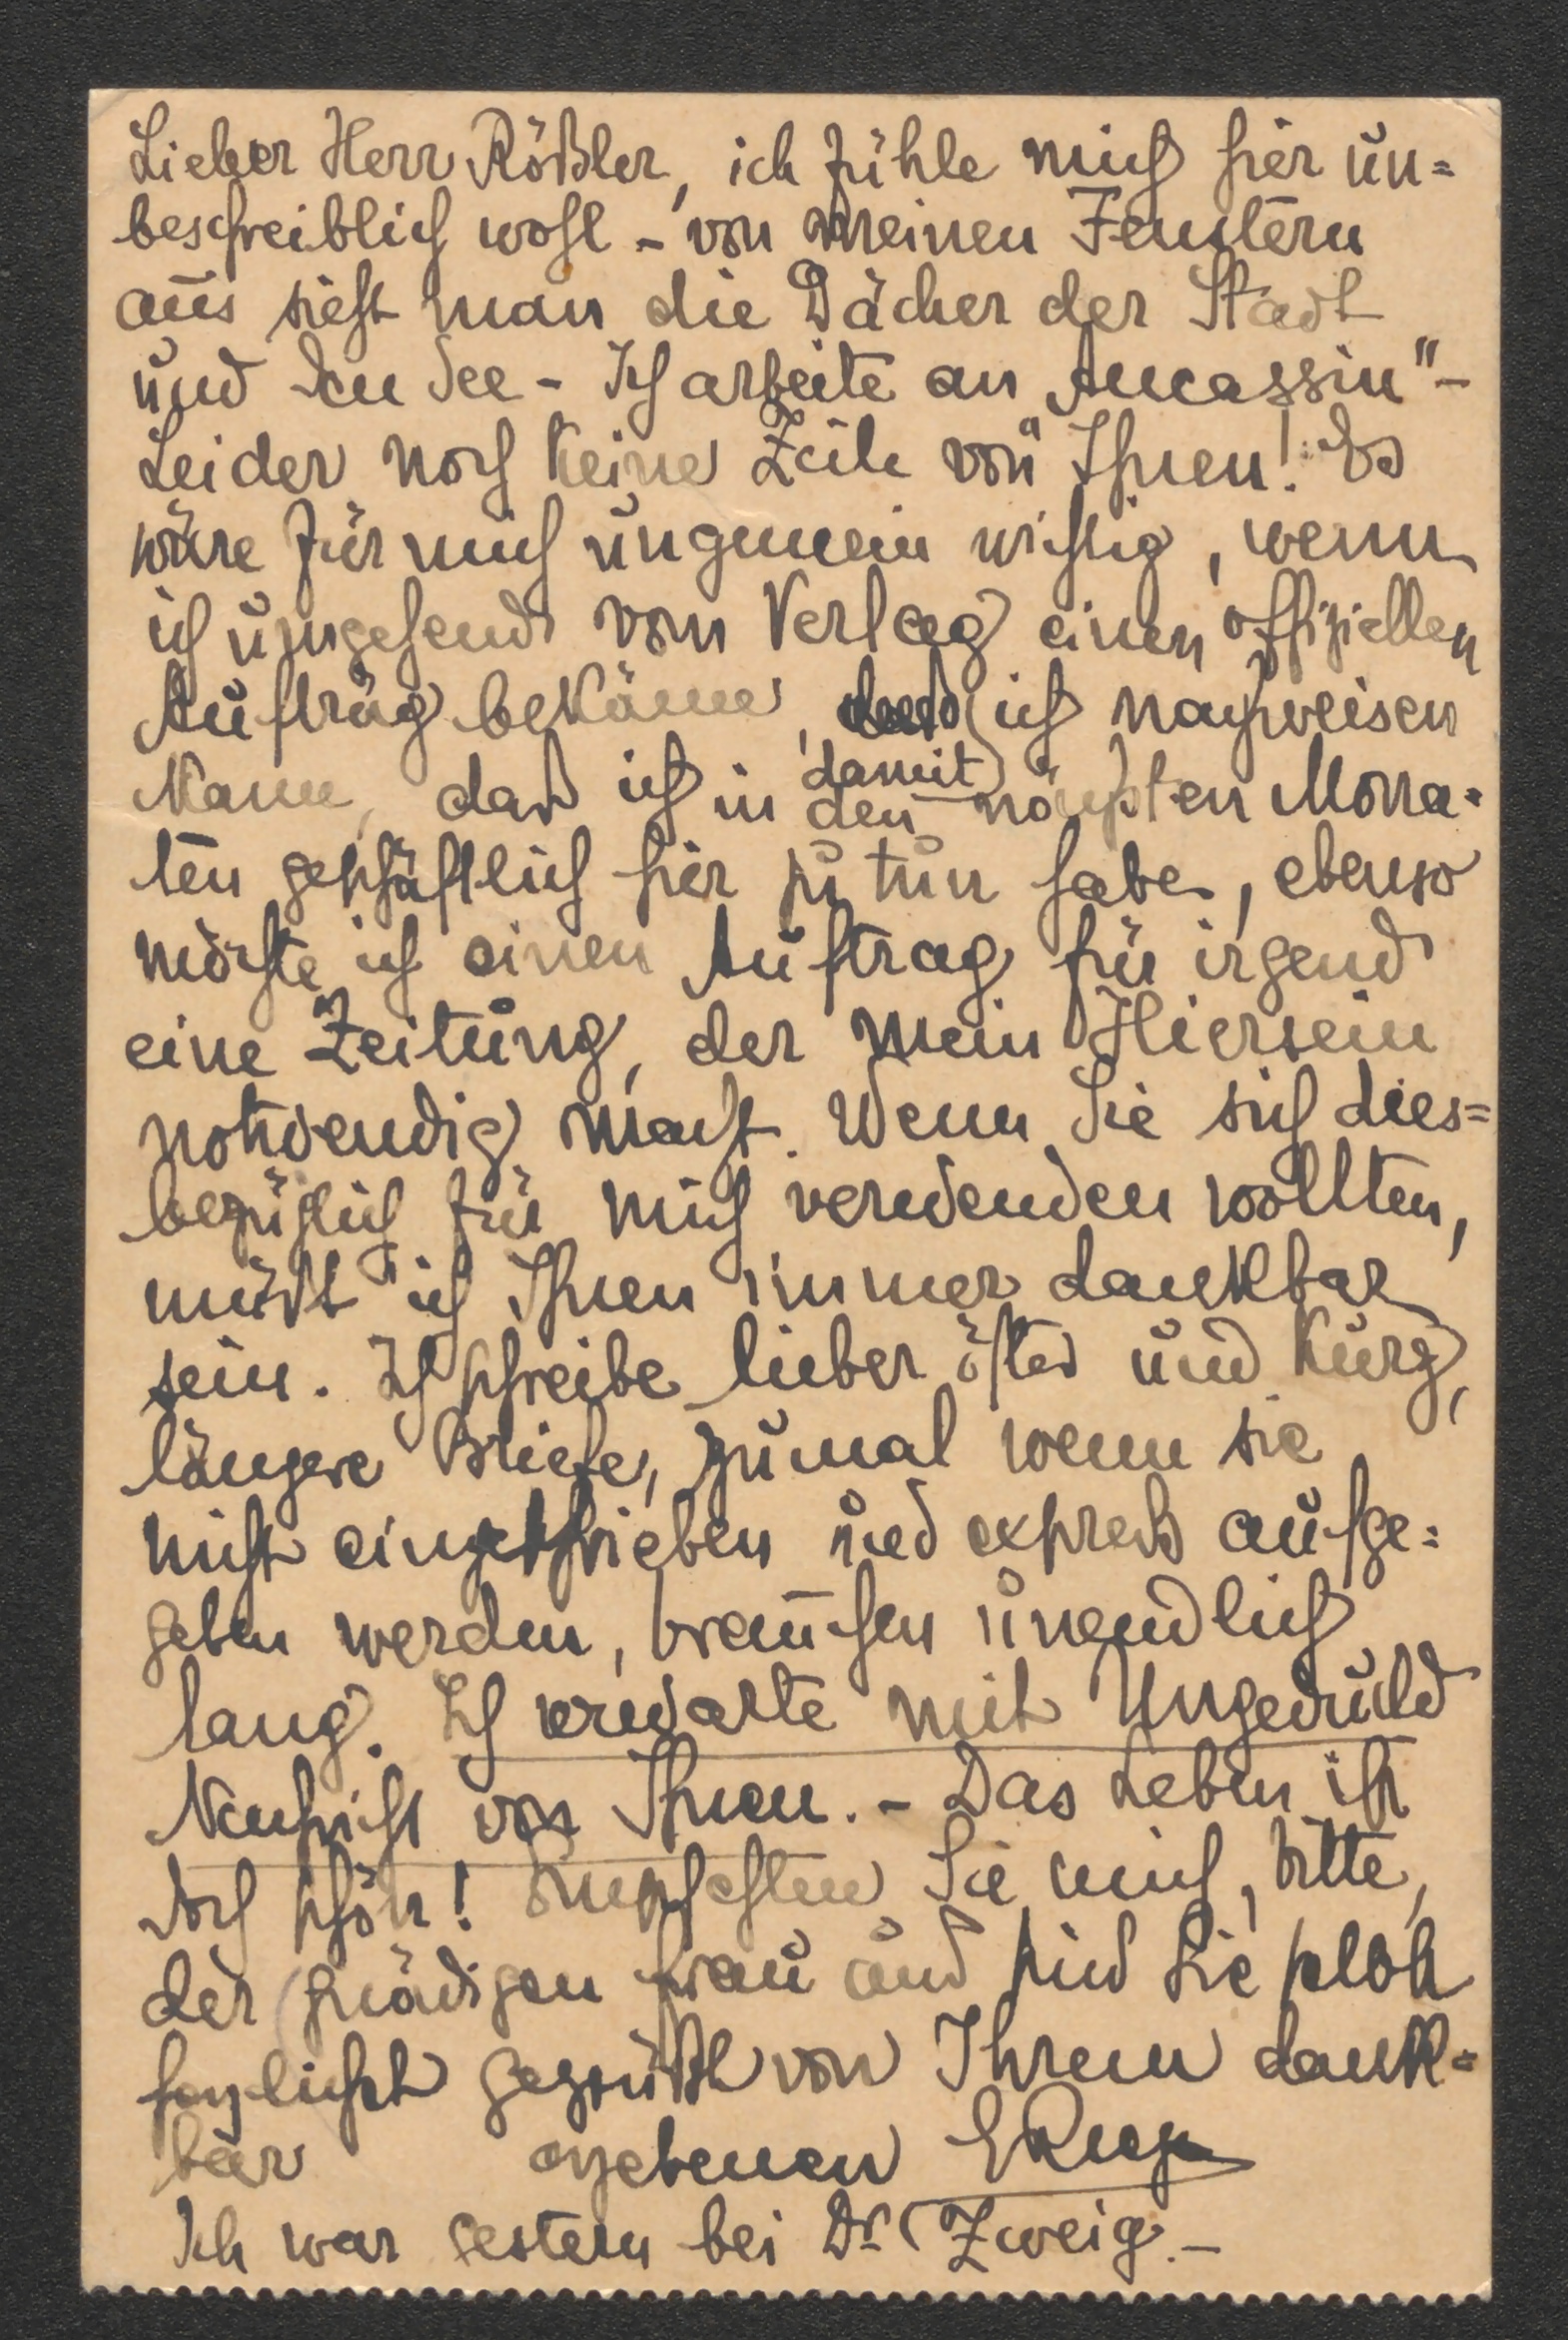 Lieber Herr Rößler, ich fühle mich hier un=
beschreiblich wohl - von meinen Fenstern
aus sieht man die Dächer der Stadt
und den See - Ich arbeite an „Aucassin" -
Leider noch keine Zeile von Ihnen! Es
wäre für mich ungemein wichtig, wenn
ich umgehend vom Verlag einen offiziellen
Auftrag bekäme, ich nachweisen
damit
kann, daß ich in den nächsten Mona=
ten geschäftlich hier zu tun habe, ebenso
möchte ich einen Auftrag für irgend
eine Zeitung, der mein Hiersein
notwendig macht. Wenn Sie sich dies=
bezüglich für mich verwenden wollten,
müßt ich Ihnen immer dankbar
sein. Ich schreibe lieber öfter und kurz,
längere Briefe, zumal wenn sie
nicht eingeschrieben und expreß aufge=
geben werden, brauchen unendlich
lang. Ich erwarte mit Ungeduld
Nachricht von Ihnen. - Das Leben ist
doch schön! Empfehlen Sie mich, bitte,
der gnädigen Frau und sind Sie selbst
herzlichst gegrüßt von Ihrem dank=
bar ergebenen
Ich war gestern bei Dr. Zweig. -